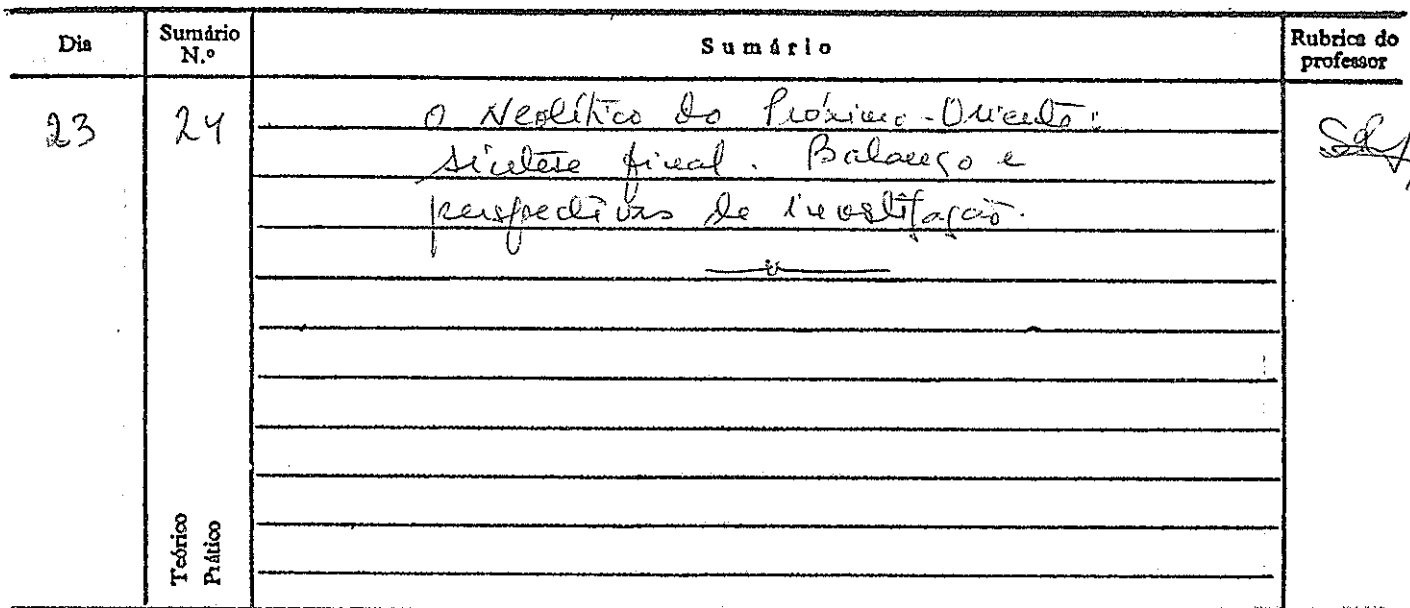 Dia
Sumário N.º
Sumário
Rubrica do professor
23
24
O Neolítico do Próximo-Oriente:
síntese final. Balanço e
perspectivas de investigação.
Teórico
Prático